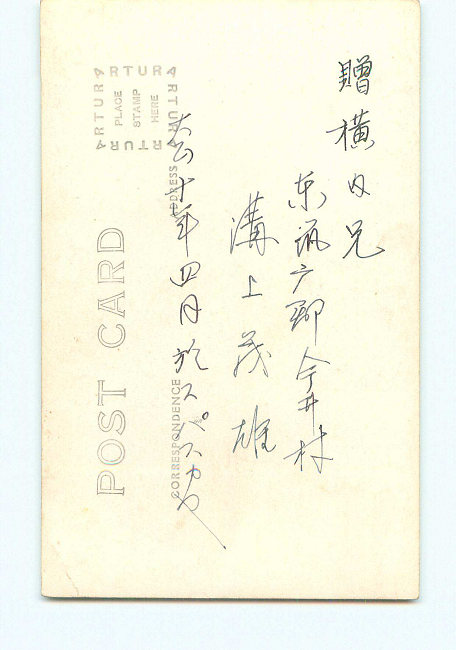 贈横内兄
東筑
郡今井村
溝上茂雄
大正十年四月於スパスカヤ
POST CARD
CORRESPONDENCE
ADDRESS
ARTURA
PLACE
STAMP
HERE
ARTURA
ARTURA
ARTURA